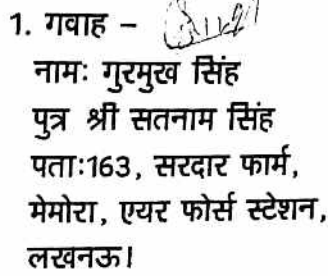 1. गवाह –
नामः गुरमुख सिंह
पुत्र श्री सतनाम सिंह
पताः163, सरदार फार्म,
मेमोरा, एयर फोर्स स्टेशन,
लखनऊ।